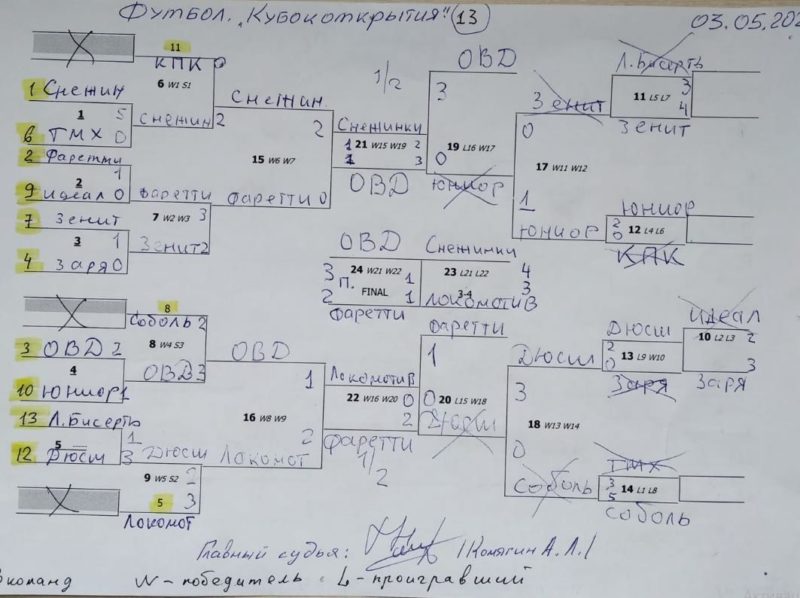 Футбол. „Кубокоткрытия" 13
03.05.202
11
КПК 0
6 W1 S1
1 Снежин
5
1
6 ТМХ 0
Снежин 2
Снежин
2
2 Фаретти
1
2
9 идеал 0
Фаретти
3
15 W6 W7
Фаретти 0
7 W2 W3
7 Зенит
1
3
4 Заря 0
Зенит 2
8
Соболь 2
8 W4 S3
3 ОВД 2
ОВД 3
ОВД
1
4
10 Юниор 1
13 Л.Бисерть
1
5
12 Дюсш 3
Дюсш
2
16 W8 W9
2
Локомот
9 W5 S2
5
3
Локомот
1/2
Снежинки
1 2
21 W15 W19
1 3
ОВД
ОВД
3
19 L16 W17
0
Юниор
Зенит
0
17 W11 W12
1
Юниор
Л.Бисерть
3
11 L5 L7
4
Зенит
Юниор
2
12 L4 L6
0
КПК
ОВД
3
24 W21 W22
1
П.
FINAL
2
1
Фаретти
Снежинки
4
23 L21 L22
3
3-4
Локомотив
Локомотив
0
22 W16 W20
2
Фаретти
1/2
Фаретти
1
20 L15 W18
0
Дюсш
Дюсш
3
18 W13 W14
0
Соболь
Дюсш
2
13 L9 W10
0
Заря
Идеал
2
10 L2 L3
3
Заря
ТМХ
3
14 L1 L8
5
Соболь
Главный судья: /Комягин А.Л./
команд W - победитель. L - проигравший